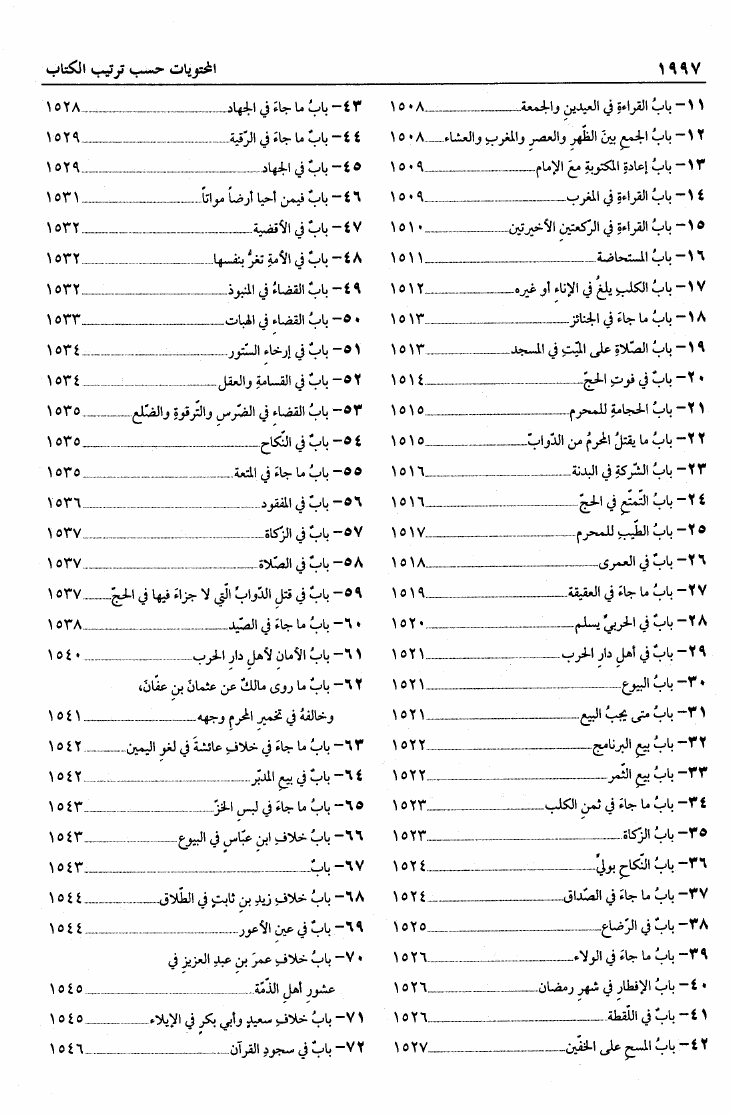 ١٩٩٧ المحتويات حسب ترتيب الكتاب
١١– بابُ القراءةِ في العيدينِ والجمعة ١٥٠٨
١٢– بابُ الجمعِ بينَ الظّهرِ والعصرِ والمغربِ والعشاء ١٥٠٨
١٣– بابُ إعادةِ المكتوبةِ معَ الإمام ١٥٠٩
١٤– بابُ القراءةِ في المغرب ١٥٠٩
١٥– بابُ القراءةِ في الرّكعتينِ الأخيرتين ١٥١٠
١٦– بابُ المستحاضة ١٥١١
١٧– بابُ الكلبِ يلغُ في الإناءِ أو غيره ١٥١٢
١٨– بابُ ما جاءَ في الجنائز ١٥١٣
١٩– بابُ الصّلاةِ على الميّتِ في المسجد ١٥١٣
٢٠– بابٌ في فوتِ الحجّ ١٥١٤
٢١– بابُ الحجامةِ للمحرم ١٥١٥
٢٢– بابُ ما يقتلُ المحرمُ من الدّوابّ ١٥١٥
٢٣– بابُ الشّركةِ في البدنة ١٥١٦
٢٤– بابُ التّمتّعِ في الحجّ ١٥١٦
٢٥– بابُ الطّيبِ للمحرم ١٥١٧
٢٦– بابٌ في العمرى ١٥١٨
٢٧– بابُ ما جاءَ في العقيقة ١٥١٩
٢٨– بابٌ في الحربيِّ يسلم ١٥٢٠
٢٩– بابٌ في أهلِ دارِ الحرب ١٥٢١
٣٠– بابُ البيوع ١٥٢١
٣١– بابُ متى يجبُ البيع ١٥٢١
٣٢– بابُ بيعِ البرنامج ١٥٢٢
٣٣– بابُ بيعِ الثّمر ١٥٢٢
٣٤– بابُ ما جاءَ في ثمنِ الكلب ١٥٢٣
٣٥– بابُ الزّكاة ١٥٢٣
٣٦– بابُ النّكاحِ بوليّ ١٥٢٤
٣٧– بابُ ما جاءَ في الصّداق ١٥٢٤
٣٨– بابٌ في الرّضاع ١٥٢٥
٣٩– بابُ ما جاءَ في الولاء ١٥٢٦
٤٠– بابُ الإفطارِ في شهرِ رمضان ١٥٢٦
٤١– بابٌ في اللّقطة ١٥٢٦
٤٢– بابُ المسحِ على الخفّين ١٥٢٧
٤٣– بابُ ما جاءَ في الجهاد ١٥٢٨
٤٤– بابُ ما جاءَ في الرّقية ١٥٢٩
٤٥– بابٌ في الجهاد ١٥٢٩
٤٦– بابٌ فيمن أحيا أرضاً مواتاً ١٥٣١
٤٧– بابٌ في الأقضية ١٥٣٢
٤٨– بابٌ في الأمةِ تغرُّ بنفسها ١٥٣٢
٤٩– بابُ القضاءُ في المنبوذ ١٥٣٢
٥٠– بابُ القضاءِ في الهبات ١٥٣٣
٥١– بابٌ في إرخاءِ السّتور ١٥٣٤
٥٢– بابٌ في القسامةِ والعقل ١٥٣٤
٥٣– بابُ القضاءِ في الضّرسِ والتّرقوةِ والضّلع ١٥٣٥
٥٤– بابٌ في النّكاح ١٥٣٥
٥٥– بابُ ما جاءَ في المتعة ١٥٣٥
٥٦– بابٌ في المفقود ١٥٣٦
٥٧– بابٌ في الزّكاة ١٥٣٧
٥٨– بابٌ في الصّلاة ١٥٣٧
٥٩– بابٌ في قتلِ الدّوابِّ الّتي لا جزاءَ فيها في الحجّ ١٥٣٧
٦٠– بابُ ما جاءَ في الصّيد ١٥٣٨
٦١– بابُ الأمانِ لأهلِ دارِ الحرب ١٥٤٠
٦٢– بابُ ما روى مالكٌ عن عثمانَ بنِ عفّانَ،
وخالفهُ في تخميرِ المحرمِ وجهه ١٥٤١
٦٣– بابُ ما جاءَ في خلافِ عائشةَ في لغوِ اليمين ١٥٤٢
٦٤– بابٌ في بيعِ المدبّر ١٥٤٢
٦٥– بابُ ما جاءَ في لبسِ الخزّ ١٥٤٣
٦٦– بابُ خلافِ ابنِ عبّاسٍ في البيوع ١٥٤٣
٦٧– بابٌ ١٥٤٣
٦٨– بابُ خلافِ زيدِ بنِ ثابتٍ في الطّلاق ١٥٤٤
٦٩– بابٌ في عينِ الأعور ١٥٤٤
٧٠– بابُ خلافِ عمرَ بنِ عبدِ العزيزِ في
عشورِ أهلِ الذّمّة ١٥٤٥
٧١– بابُ خلافِ سعيدٍ وأبي بكرٍ في الإيلاء ١٥٤٥
٧٢– بابٌ في سجودِ القرآن ١٥٤٦